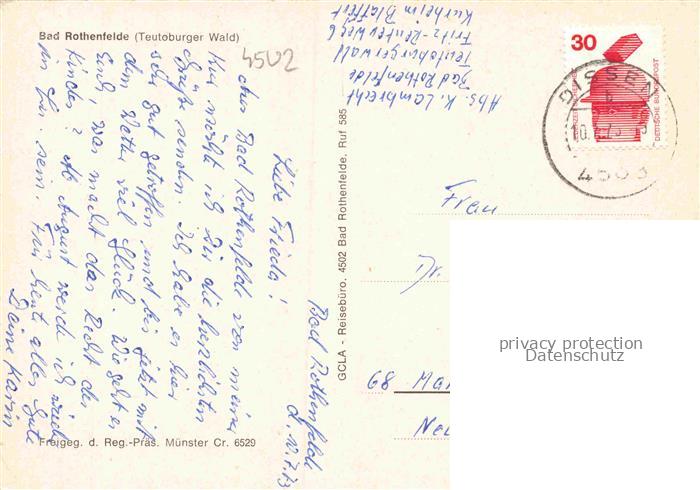 Bad Rothenfelde (Teutoburger Wald)
4502
Bad Rothenfelde
d. 10.7.73
Liebe Frieda!
Aus Bad Rothenfelde von meiner
Kur möcht ich Dir die herzlichsten
Grüße senden. Ich habe es hier
sehr gut getroffen und bis jetzt mit
dem Wetter viel Glück. Wie geht es
Euch, was macht das Recht der
Kinder? Ab August werd ich wied
in sein. Für heut alles Gute
Deine Karin
Freigeg. d. Reg.-Präs. Münster Cr. 6529
GCLA - Reisebüro, 4502 Bad Rothenfelde, Ruf 585
Abs. K. Lambrecht
Bad Rothenfelde
Teutoburgerwald
Fritz-Reuterweg 6
Kurheim Blaffert
30
DEUTSCHE BUNDESPOST
DISSEN
10.7.73
4503
Frau
Dr.
68 Man
Neu
privacy protection
Datenschutz